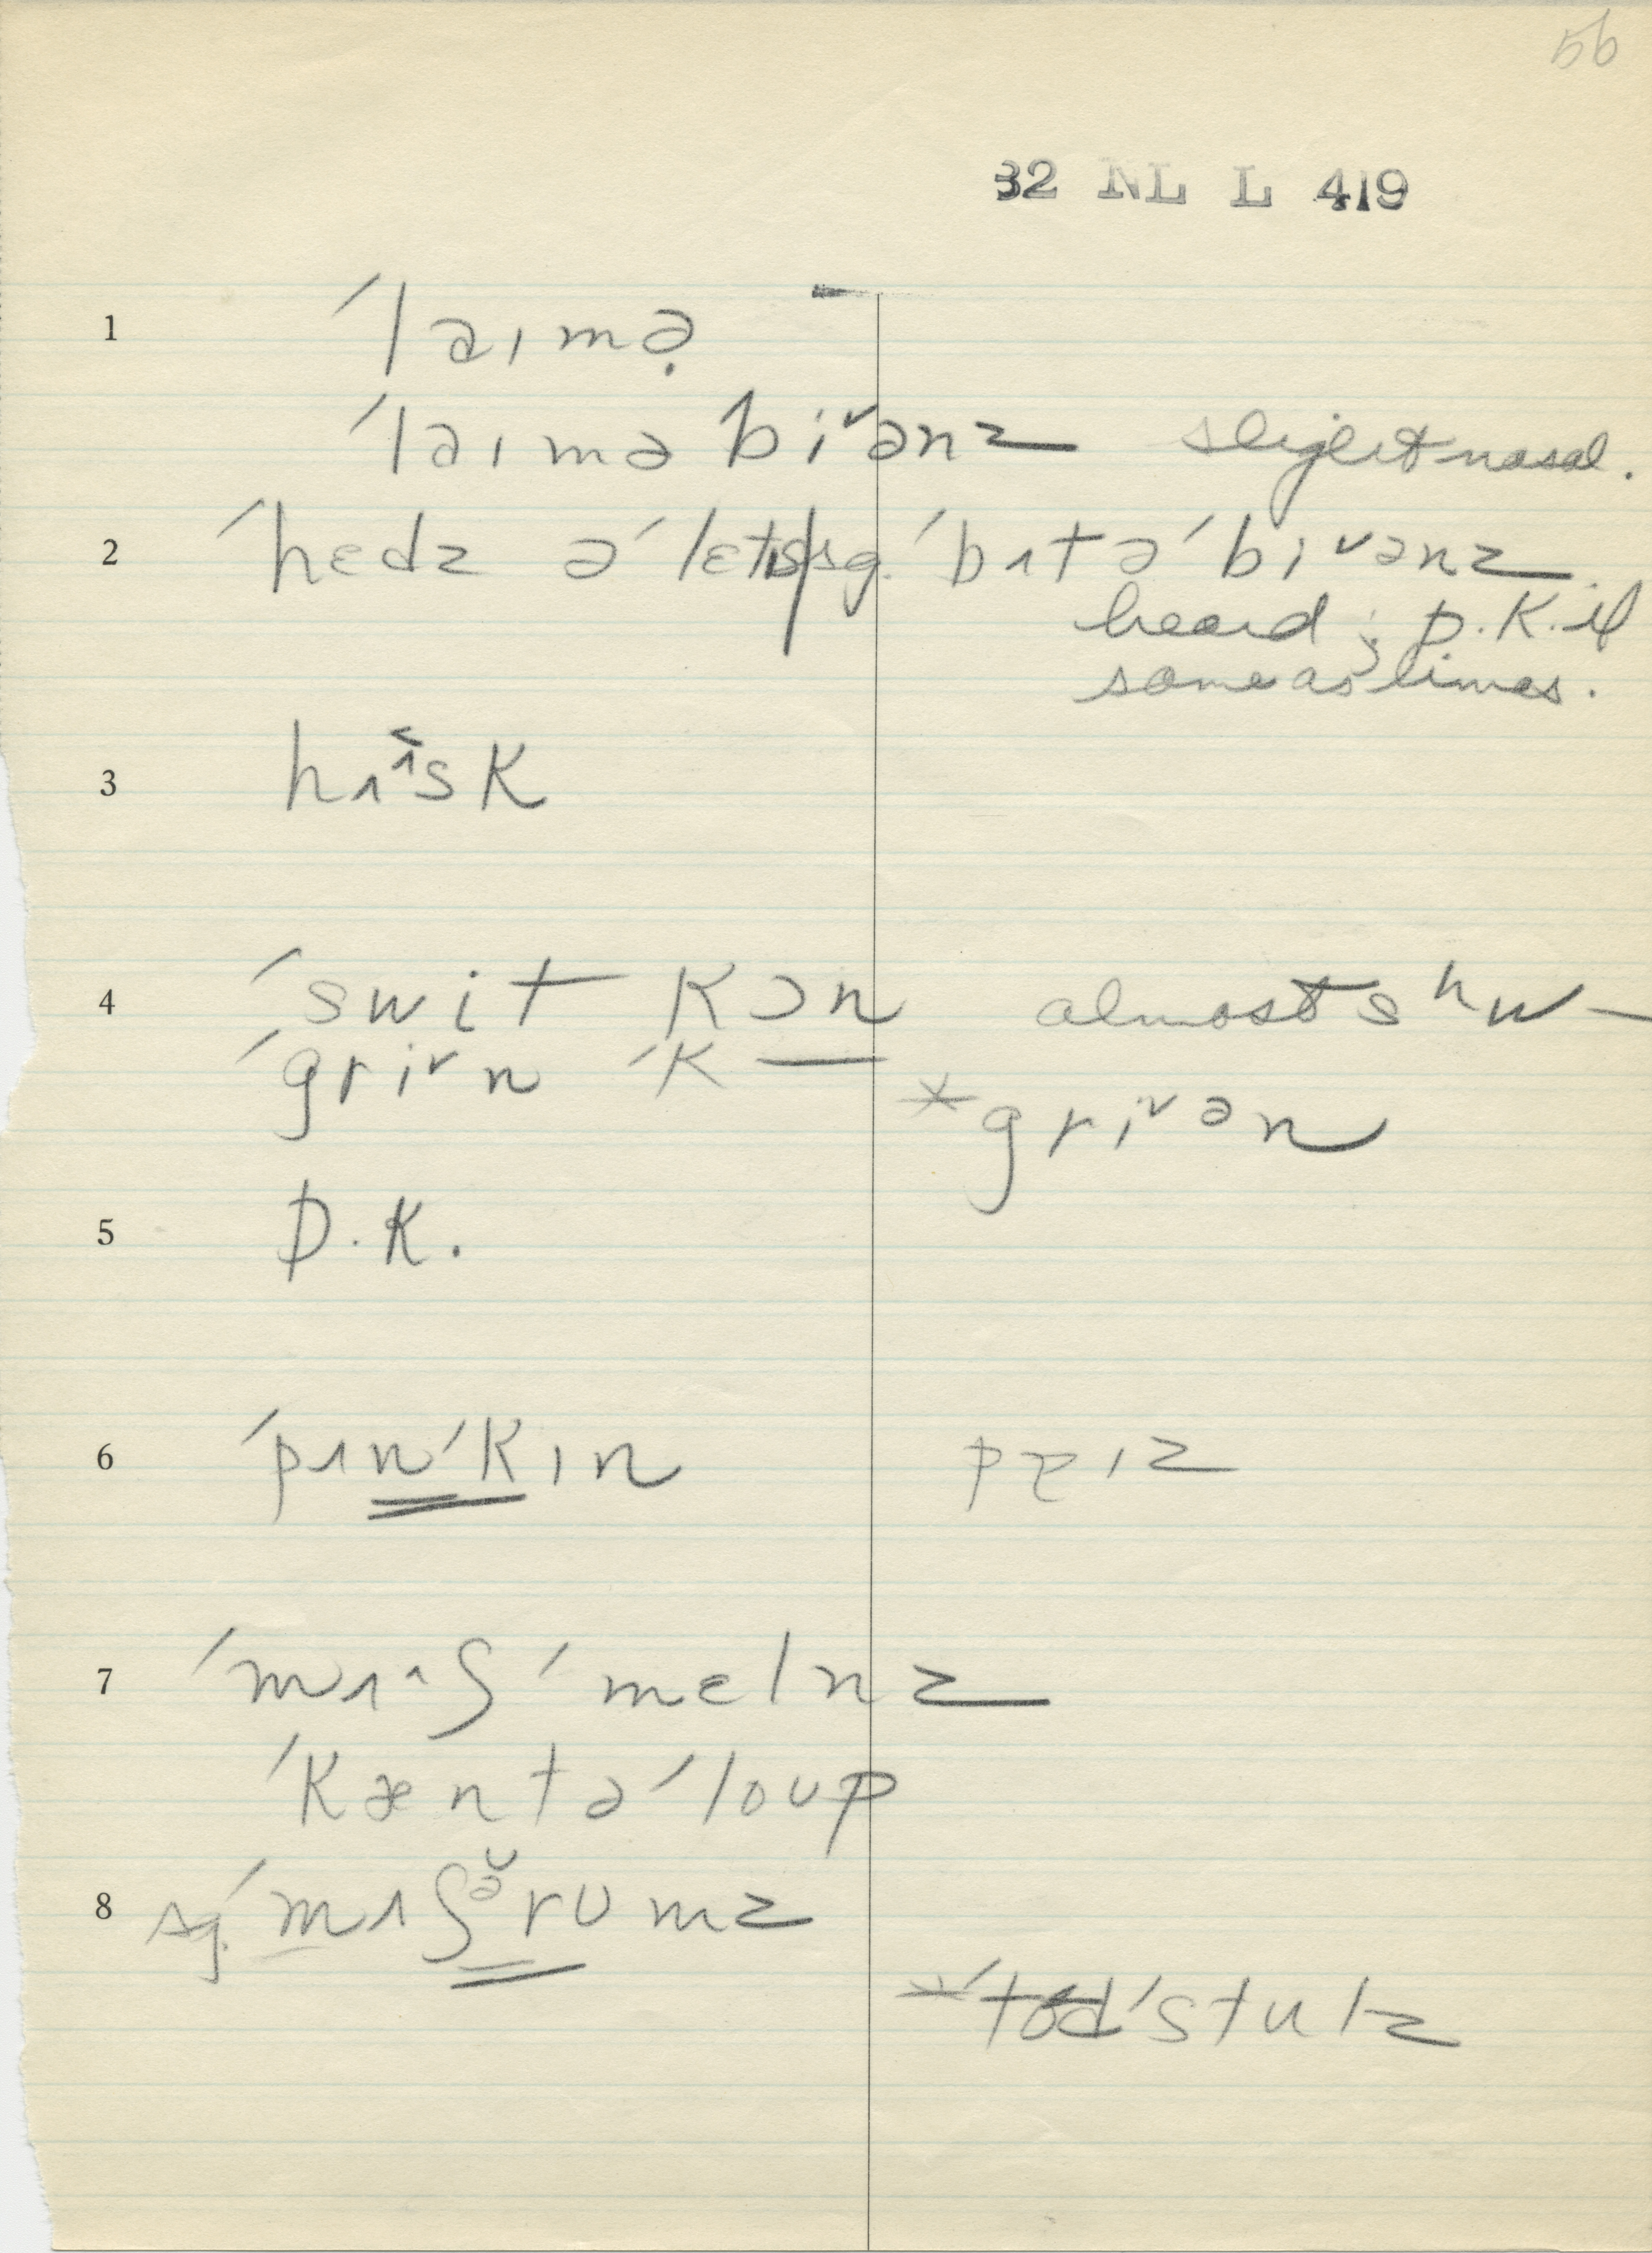 56
32 NL L 419
1 ˊlaɪmə̣
ˊlaɪmə biᵛənz slight nasal.
2 ˊhɛdz əˊlɛtɪs sg. ˊbʌtəˊbiᵛənz
heard; D.K. if
same as limas.
3 hʌˆsk
4 ˊswit kɔn almost sʰw–
ˊgriᵛn ˊk — *griᵛən
5 D.K.
6 ˊpʌnˊkɪn pɪz
7 ˊmʌˆʃˊmɛlnz
ˊkæntəˊloup
8 sg. ˊmʌʃə̆rumz
*ˊtodˊstulz